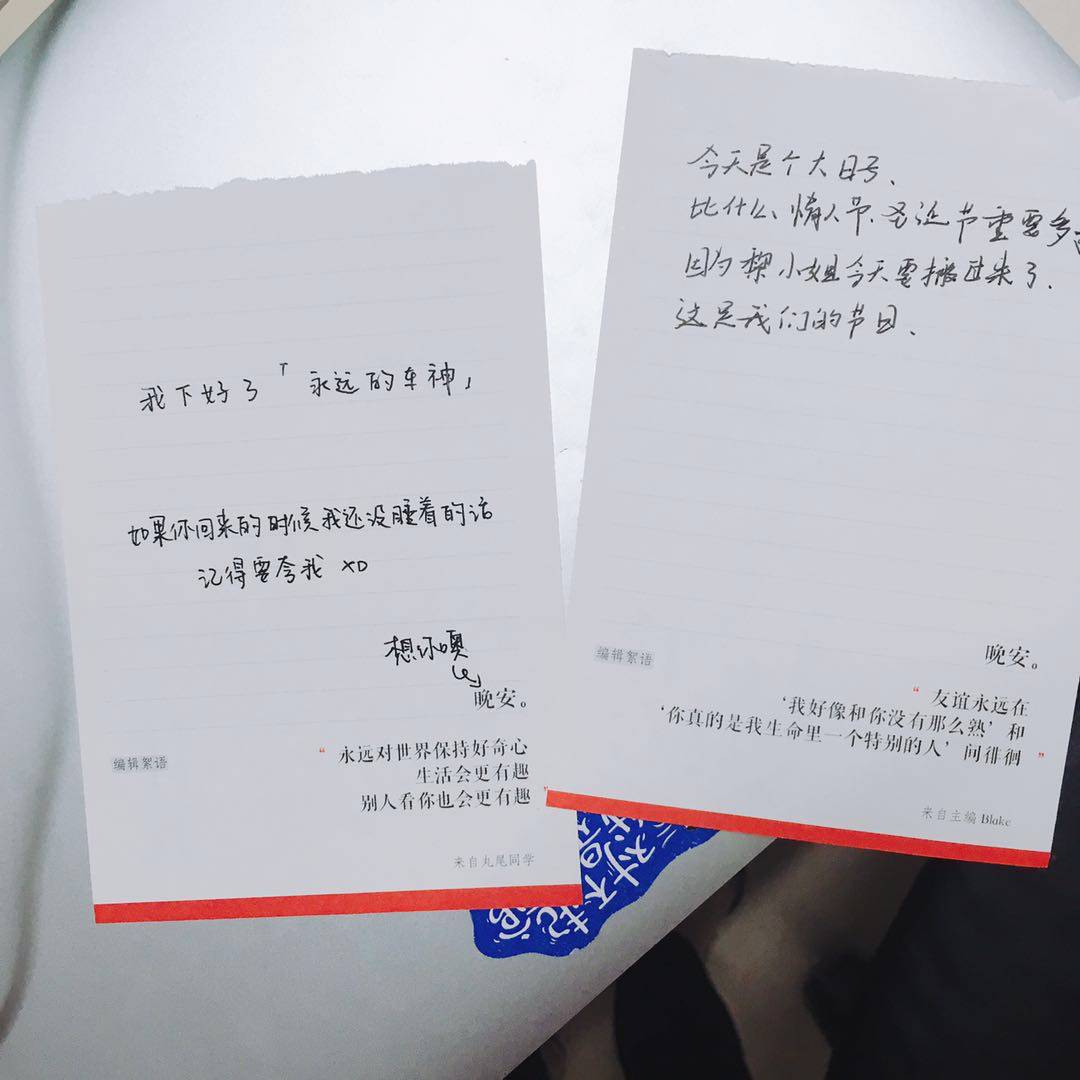 我下好了「永远的车神」
如果你回来的时候我还没睡着的话
记得要夸我 XD
想你噢
晚安。
编辑絮语
“ 永远对世界保持好奇心
生活会更有趣
别人看你也会更有趣 ”
来自丸尾同学
今天是个大日子、
比什么、情人节、圣诞节重要多
因为 小姐今天要搬过来了、
这是我们的节日、
晚安。
编辑絮语
“ 友谊永远在
‘我好像和你没有那么熟’ 和
‘你真的是我生命里一个特别的人’ 间徘徊 ”
来自主编 Blake
对不起